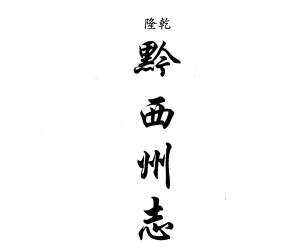 乾隆
黔西州志